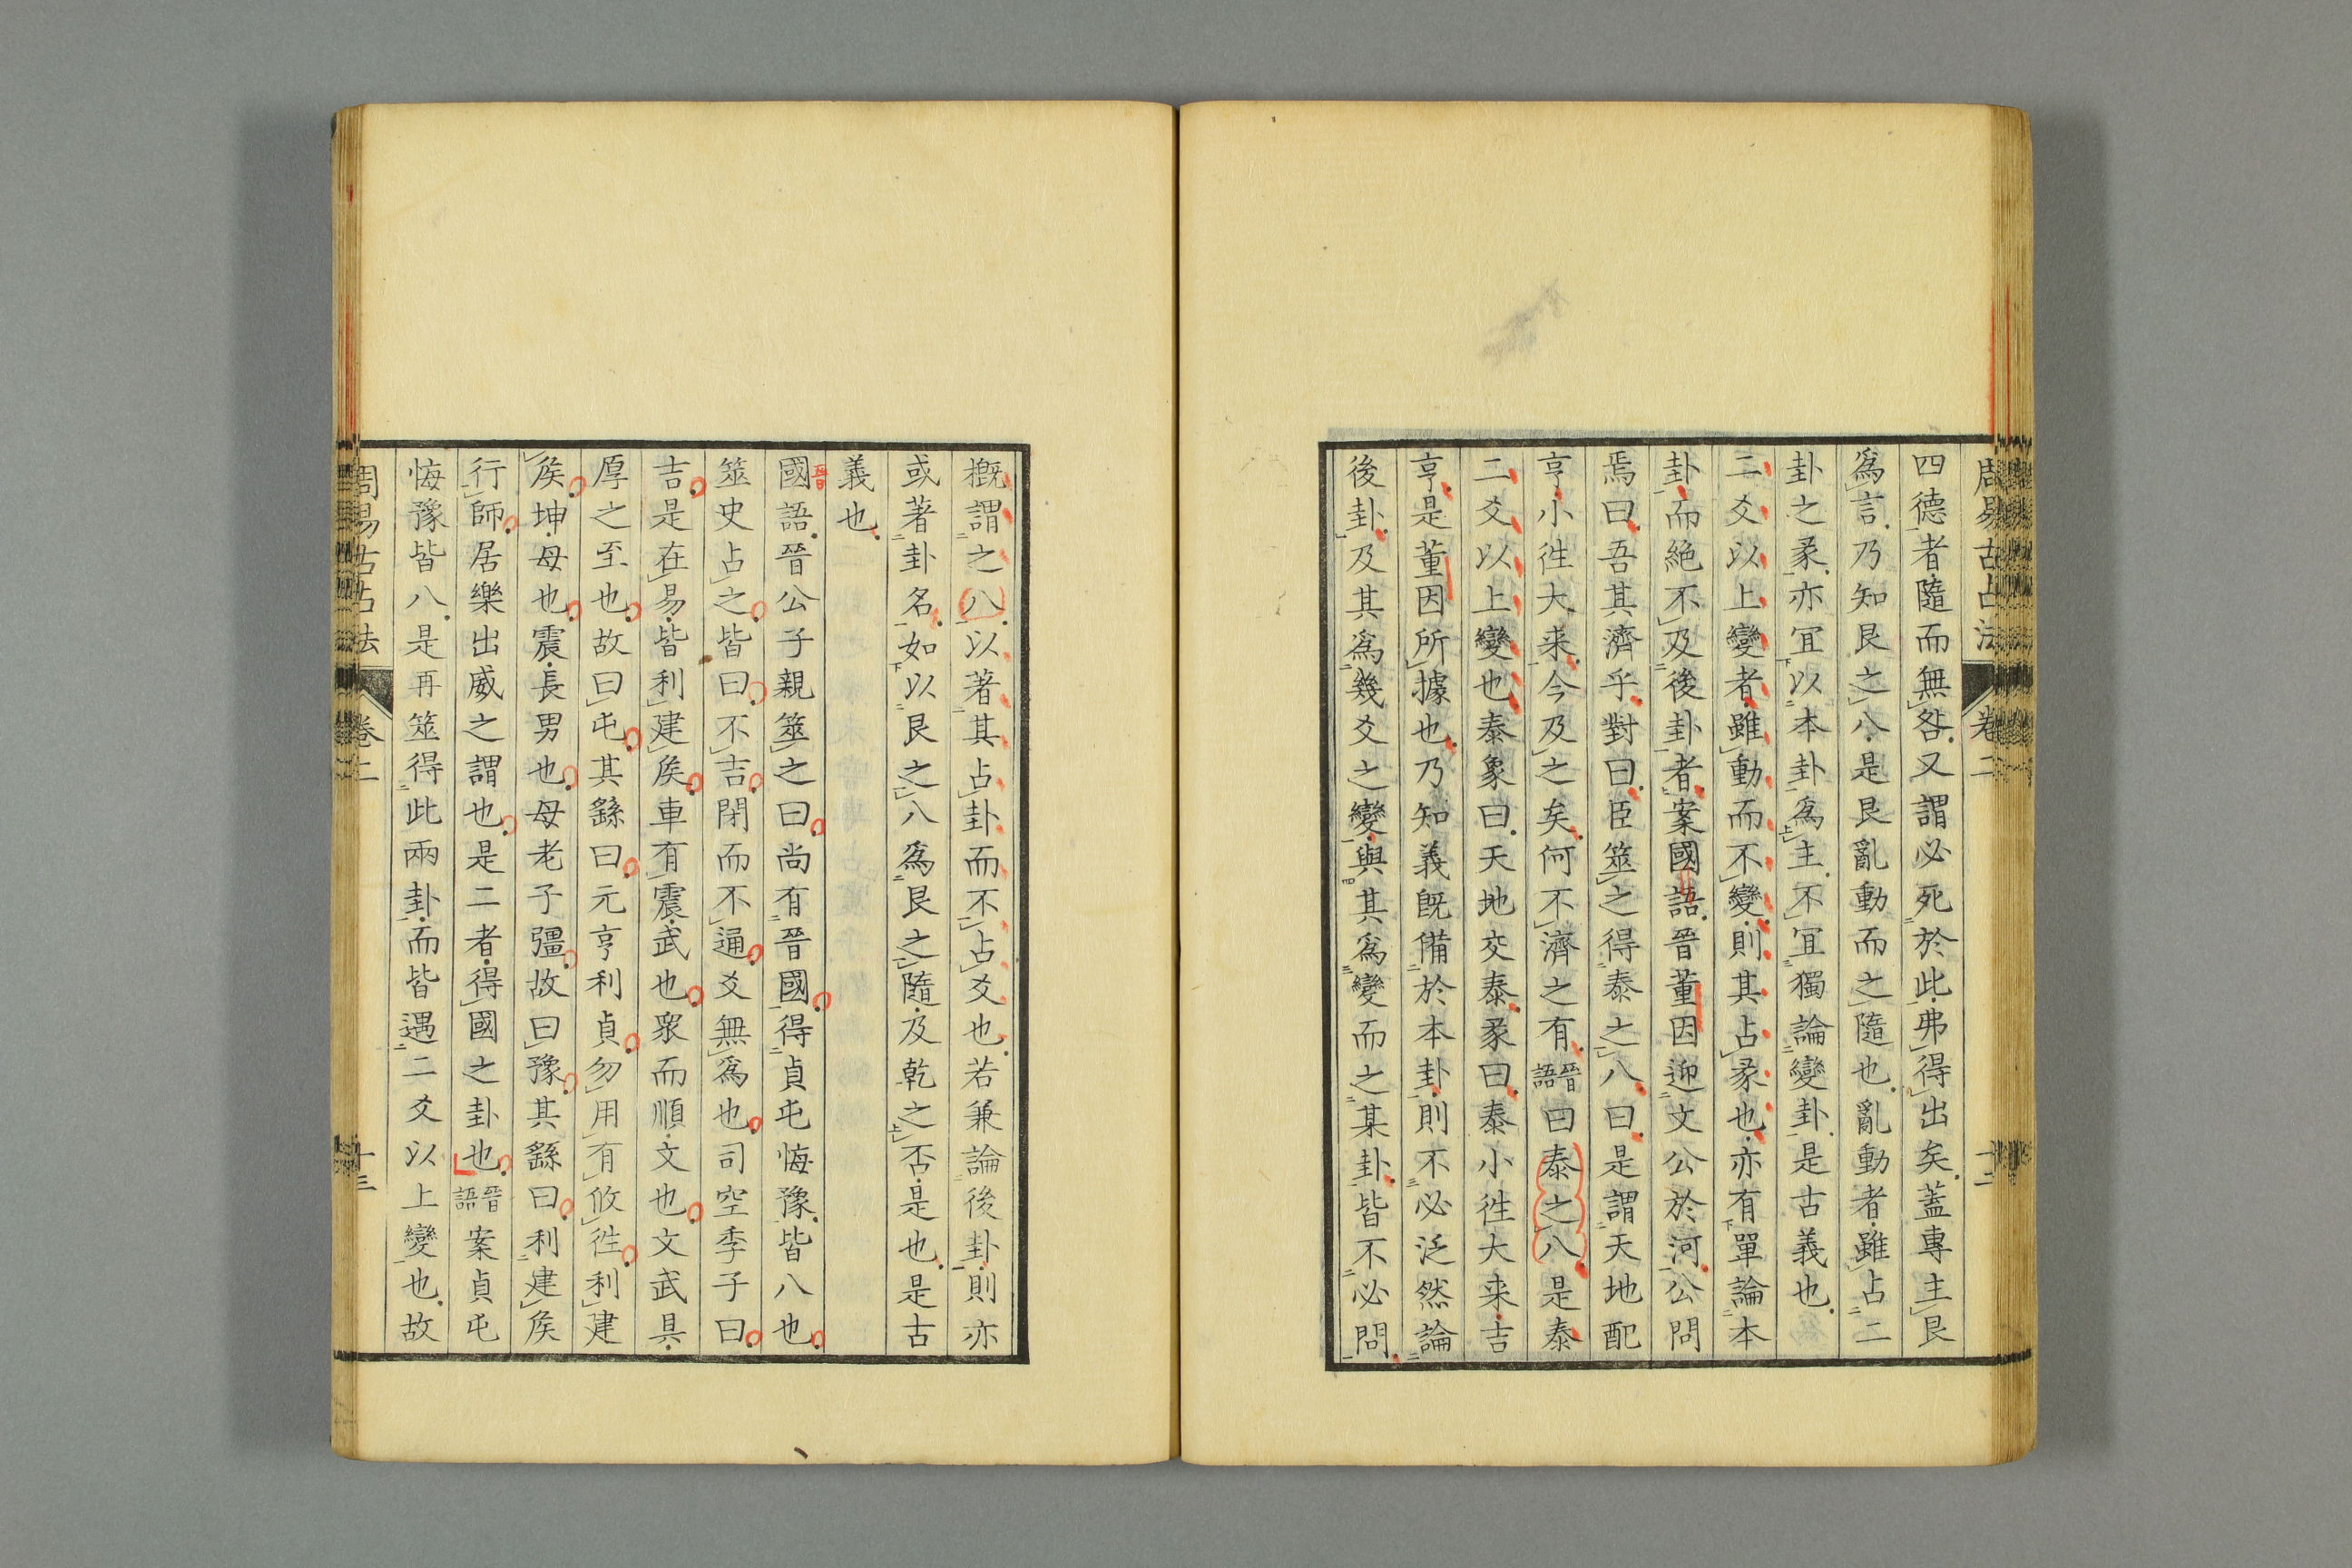 周易古占法 卷二 十二
四德者隨而無咎又謂必死於此弗得出矣蓋專主艮
爲言乃知艮之八是艮亂動而之隨也亂動者雖占二
卦之彖亦宜以本卦爲主不宜獨論變卦是古義也
二爻以上變者雖動而不變則其占彖也亦有單論本
卦而絶不及後卦者案國語晉董因迎文公於河公問
焉曰吾其濟乎對曰臣筮之得泰之八曰是謂天地配
亨小徃大来今及之矣何不濟之有晉語曰泰之八是泰
二爻以上變也泰象曰天地交泰彖曰泰小徃大来吉
亨是董因所據也乃知義既備於本卦則不必泛然論
後卦及其爲幾爻之變與其爲變而之某卦皆不必問
概謂之八以著其占卦而不占爻也若兼論後卦則亦
或著卦名如以艮之八爲艮之隨及乾之否是也是古
義也
國語晉公子親筮之曰尚有晉國得貞屯悔豫皆八也
筮史占之皆曰不吉閉而不通爻無爲也司空季子曰
吉是在易皆利建矦車有震武也衆而順文也文武具
厚之至也故曰屯其繇曰元亨利貞勿用有攸徃利建
矦坤母也震長男也母老子彊故曰豫其繇曰利建矦
行師居樂出威之謂也是二者得國之卦也晉語案貞屯
悔豫皆八是再筮得此兩卦而皆遇二爻以上變也故
周易古占法 卷二 十三